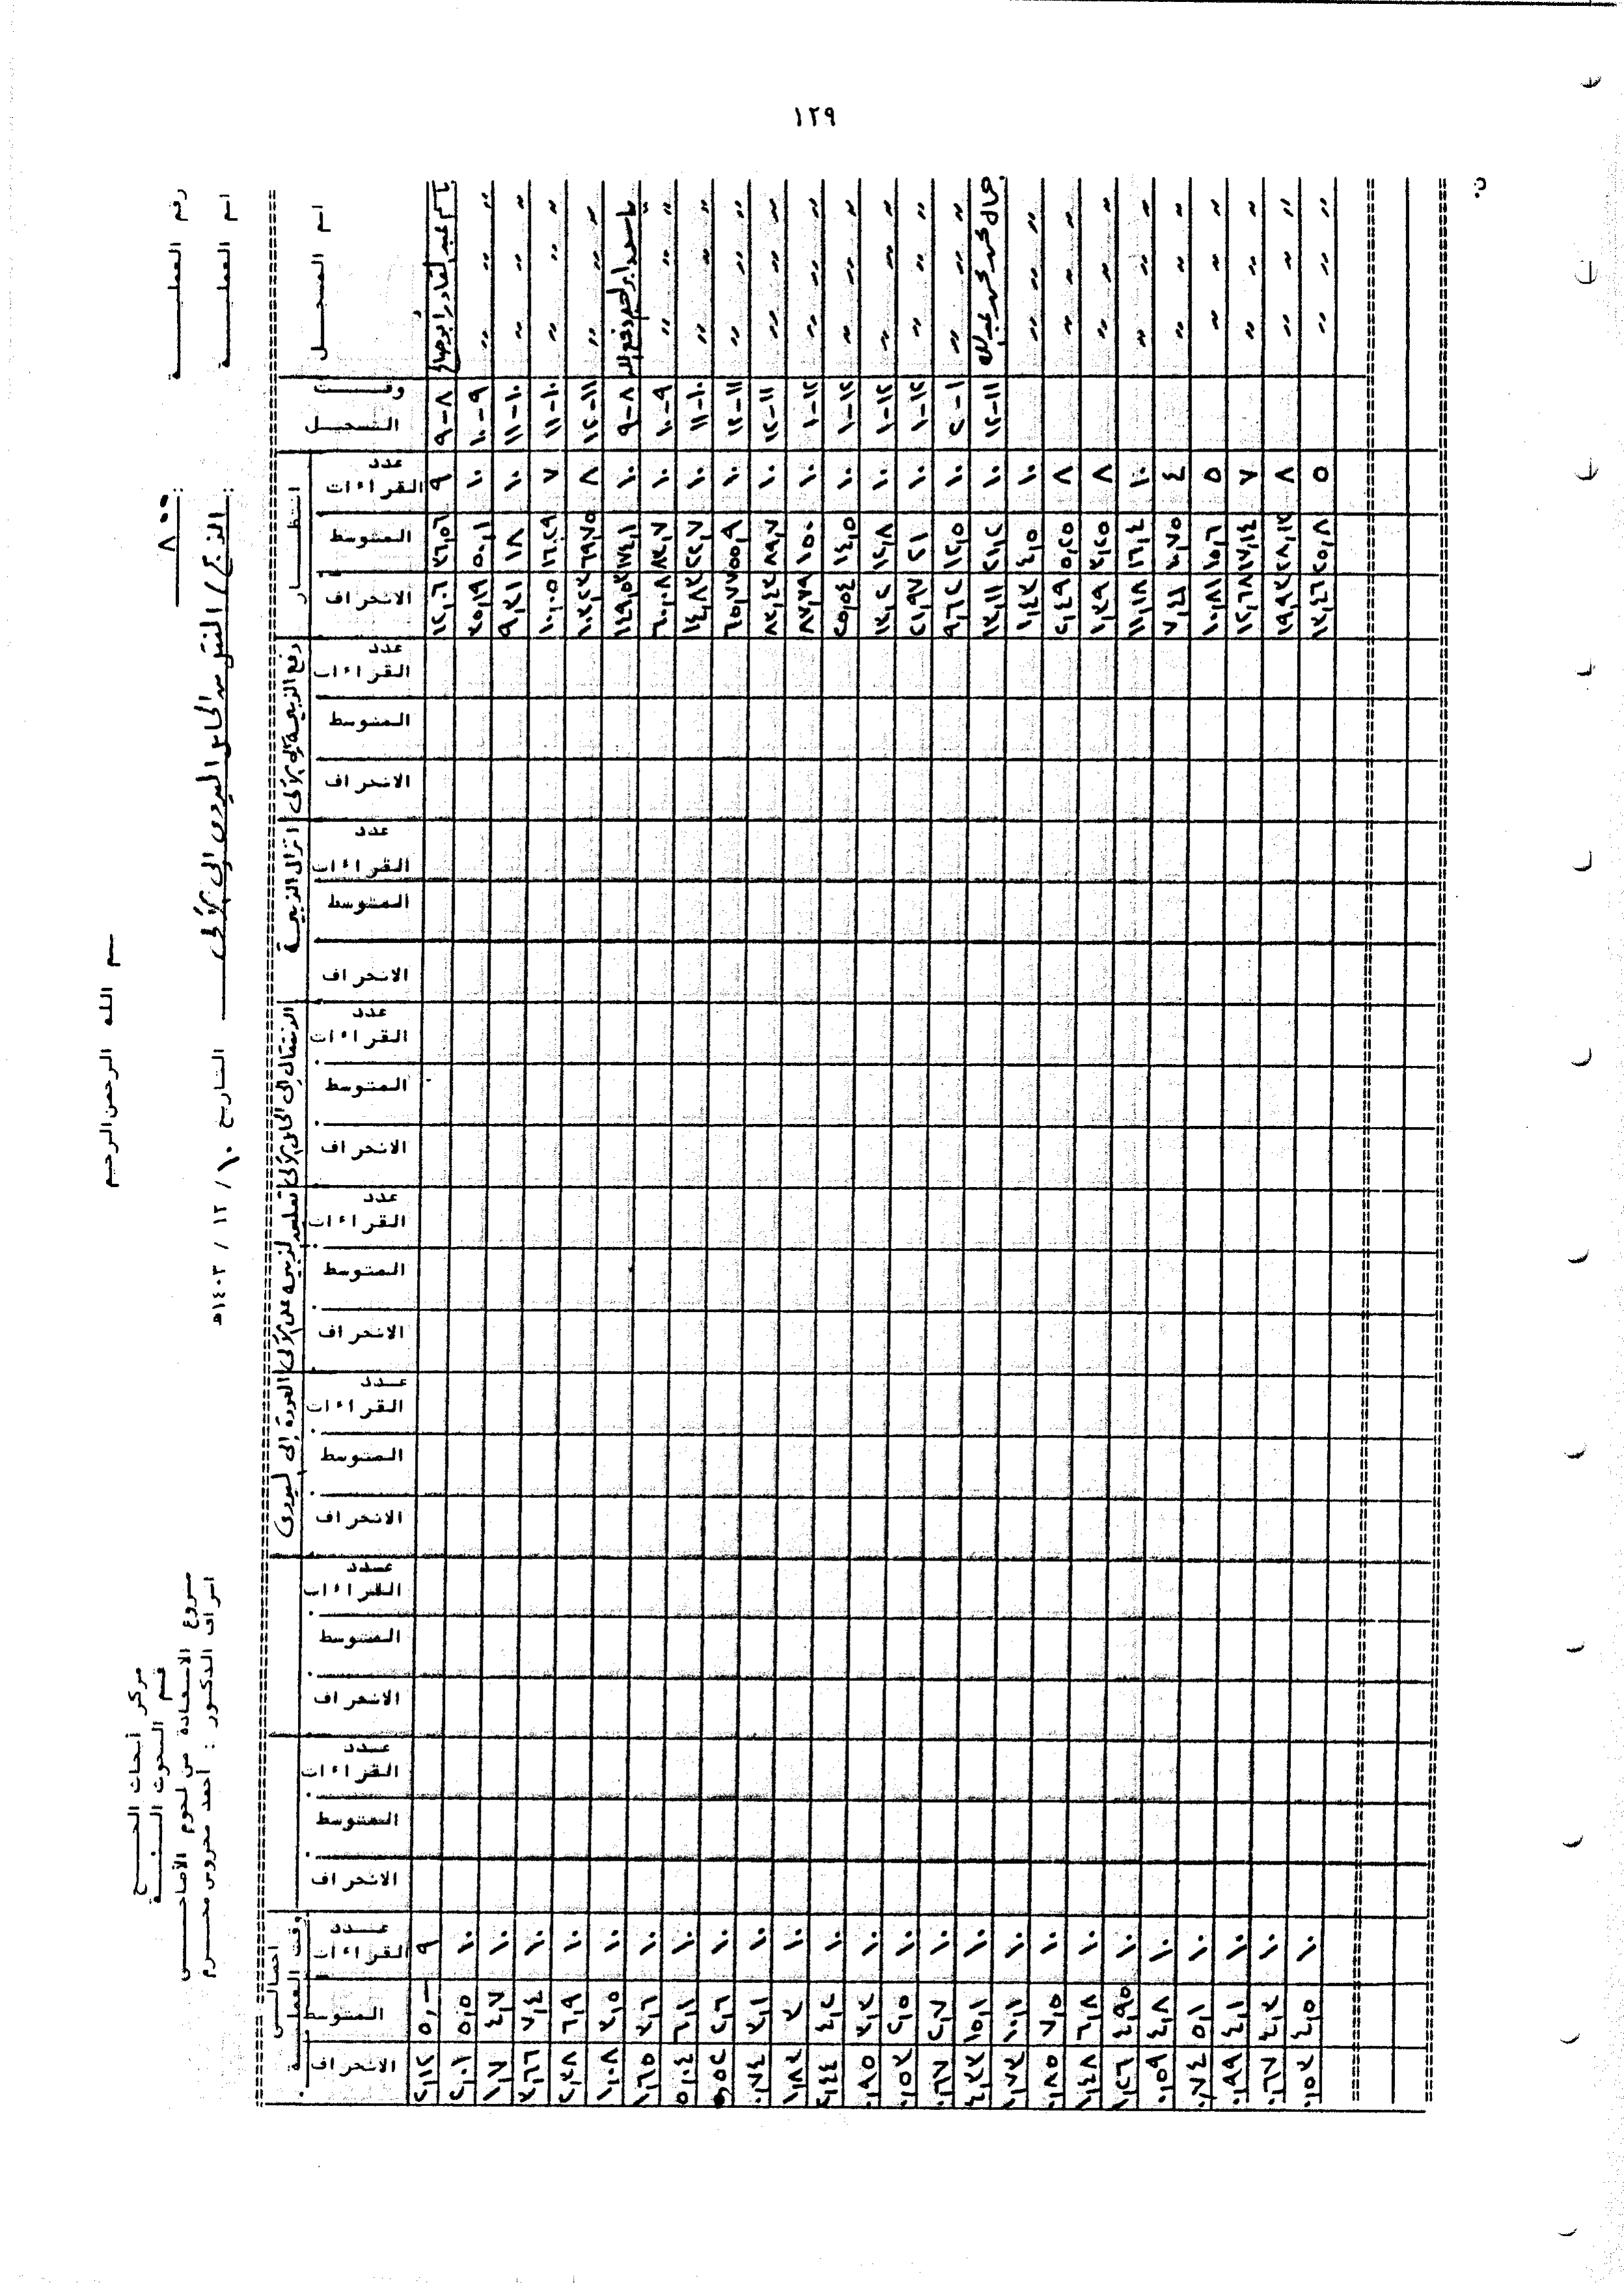 ١٢٩
بسم الله الرحمن الرحيم
مركز أبحاث الحج
قسم البحوث
مشروع الاستفادة من لحوم الأضاحي
اشراف الدكتور : أحمد محروس محرم
رقم العملية : ٨٠٠
اسم العملية : الذبح / النقل من الحامل اليدوي إلى الآلي التاريخ ١٠ / ١٢ / ١٤٠٣هـ
اسم المسجل وقت التسجيل انتظار دفع الذبيحة إلى الآلي انزال الذبيحة الانتقال إلى الحامل الآلي تعليق الذبيحة على الآلي العودة إلى اليدوي اجمالي وقت العملية
عدد القراءات المتوسط الانحراف عدد القراءات المتوسط الانحراف عدد القراءات المتوسط الانحراف عدد القراءات المتوسط الانحراف عدد القراءات المتوسط الانحراف عدد القراءات المتوسط الانحراف عدد القراءات المتوسط الانحراف عدد القراءات المتوسط الانحراف عدد القراءات المتوسط الانحراف
٨-٩ ٩ ٢٦,٥٦ ١٢,٠٦ ٩ ٥,- ٢,١٢
" " " ٩-١٠ ١٠ ٥٠,١ ٣٥,١٩ ١٠ ٥,٥ ٢,٠١
" " " ١٠-١١ ١٠ ١٨ ٩,٣١ ١٠ ٤,٧ ١,٧
" " " ١٠-١١ ٧ ١٦,٢٩ ١٠,٠٥ ١٠ ٧,٤ ٣,٦٦
" " " ١١-١٢ ٨ ٦٩,٧٥ ١٠٣,٢٣ ١٠ ٦,٩ ٢,٣٨
٨-٩ ١٠ ١٧٤,١ ١٤٩,٥٣ ١٠ ٣,٥ ١,٠٨
" " " ٩-١٠ ١٠ ٨٣,٧ ٦٠,٠٨ ١٠ ٣,٦ ١,٦٥
" " " ١٠-١١ ١٠ ٢٢,٧ ١٤,٨٣ ١٠ ٦,١ ٥,٠٤
" " " ١١-١٢ ١٠ ٥٥,٩ ٦٥,٧٧ ١٠ ٢,٦ ٠,٥٢
" " " ١١-١٢ ١٠ ٨٩,٧ ٨٣,٤٣ ١٠ ٣,١ ٠,٧٤
" " " ١٢-١ ١٠ ١٥٠ ٨٧,٧٩ ١٠ ٣ ١,٨٣
" " " ١٢-١ ١٠ ١٤,٥ ٢٥,٥٤ ١٠ ٤,٢ ٢,٤٤
" " " ١٢-١ ١٠ ١٢,٨ ١٣,٢ ١٠ ٣,٣ ٠,٩٥
" " " ١٢-١ ١٠ ٢١ ٢١,٩٧ ١٠ ٢,٥ ٠,٥٣
" " " ١-٢ ١٠ ١٢,٥ ٩,٦٢ ١٠ ٢,٧ ٠,٦٧
جمال محمد محمد عبدالله ١١-١٢ ١٠ ٢١,٢ ١٣,١١ ١٠ ١٥,١ ٤,٣٣
" " " ١٠ ٤,٥ ١,٤٣ ١٠ ١٠,١ ١,٧٣
" " " ٨ ٥,٢٥ ٢,٤٩ ١٠ ٧,٥ ٠,٨٥
" " " ٨ ٣,٢٥ ١,٣٩ ١٠ ٦,٨ ١,٤٨
" " " ١٠ ١٦,٤ ١١,١٨ ١٠ ٤,٩٥ ١,٢٦
" " " ٤ ١٠,٧٥ ٧,٤١ ١٠ ٤,٨ ٠,٥٩
" " " ٥ ١٥,٦ ١٠,٨١ ١٠ ٥,١ ٠,٧٤
" " " ٧ ١٧,١٤ ١٢,٦٨ ١٠ ٤,١ ٠,٩٩
" " " ٨ ٢٨,١٣ ١٩,٩٣ ١٠ ٤,٣ ٠,٦٧
" " " ٥ ٢٥,٨ ١٣,٤٦ ١٠ ٤,٥ ٠,٥٣